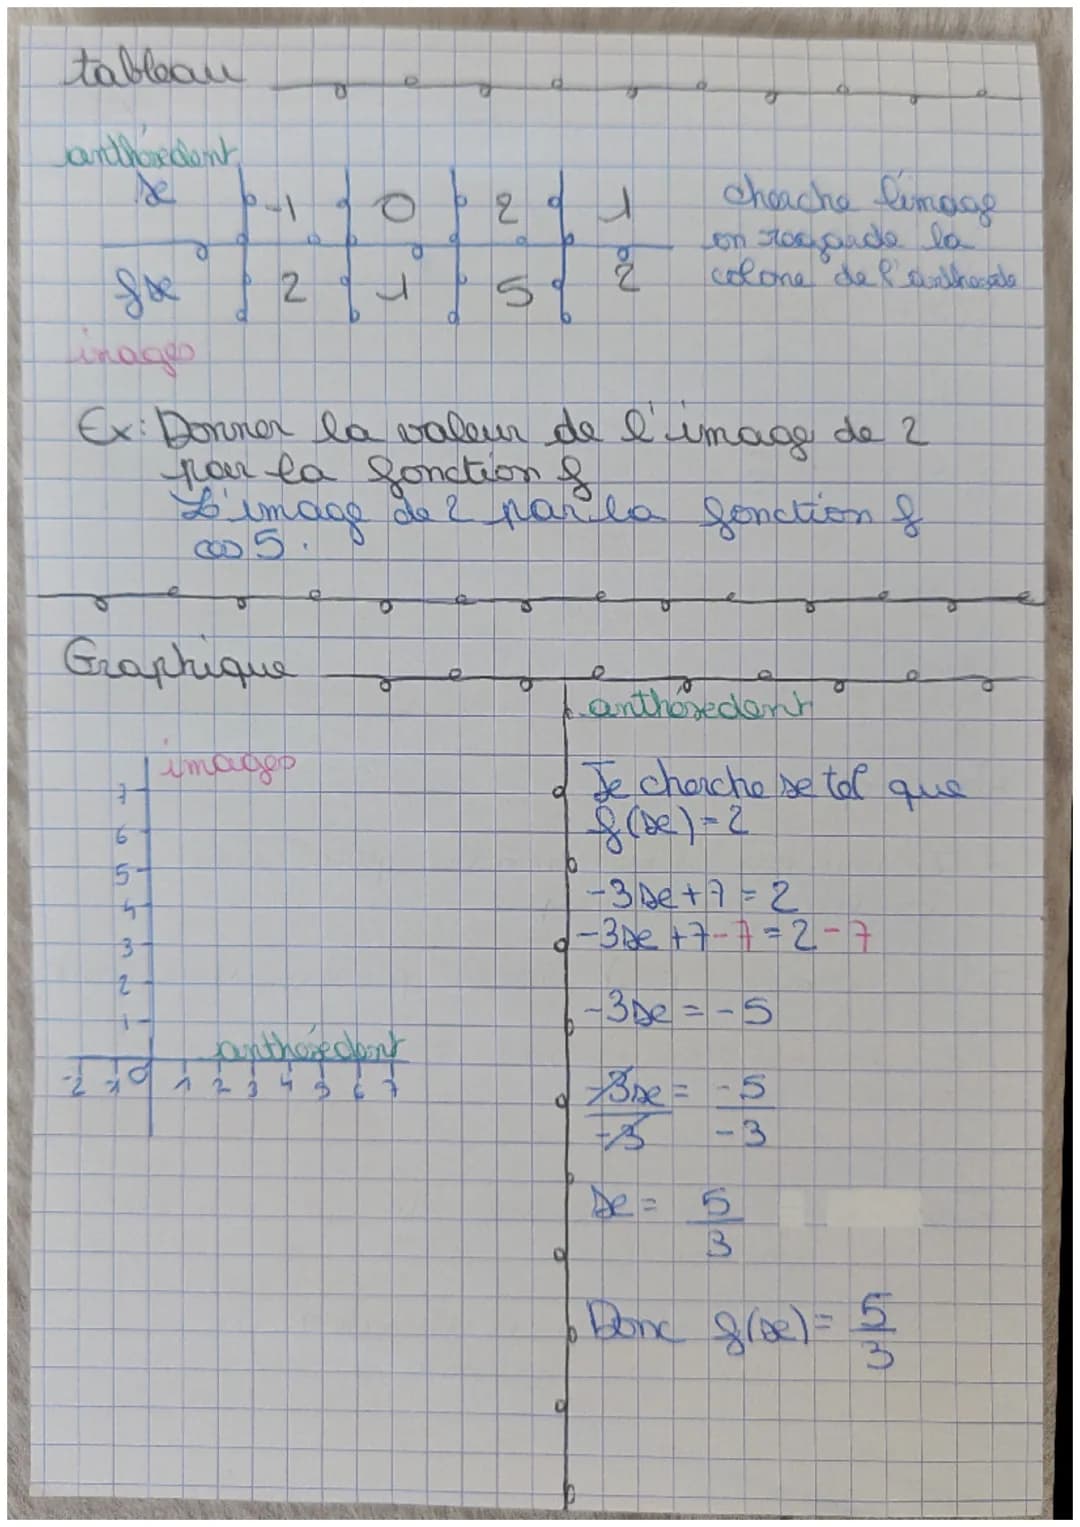 tableau
anthésedent
x -1 0 2 1
fx 2 1 5 2
images
cherche l'image
on regarde la
colone de l'anthesede
Ex: Donner la valeur de l'image de 2
par la fonction f
L'image de 2 par la fonction f
es 5.
Graphique
images
7
6
5
4
3
2
1
anthésedent
-2 -1 0 1 2 3 4 5 6 7
anthésedent
Je cherche x tel que
f(x)=2
-3x+7=2
-3x+7-7=2-7
-3x=-5
-3x/-3 = -5/-3
x= 5/3
Donc f(x)= 5/3